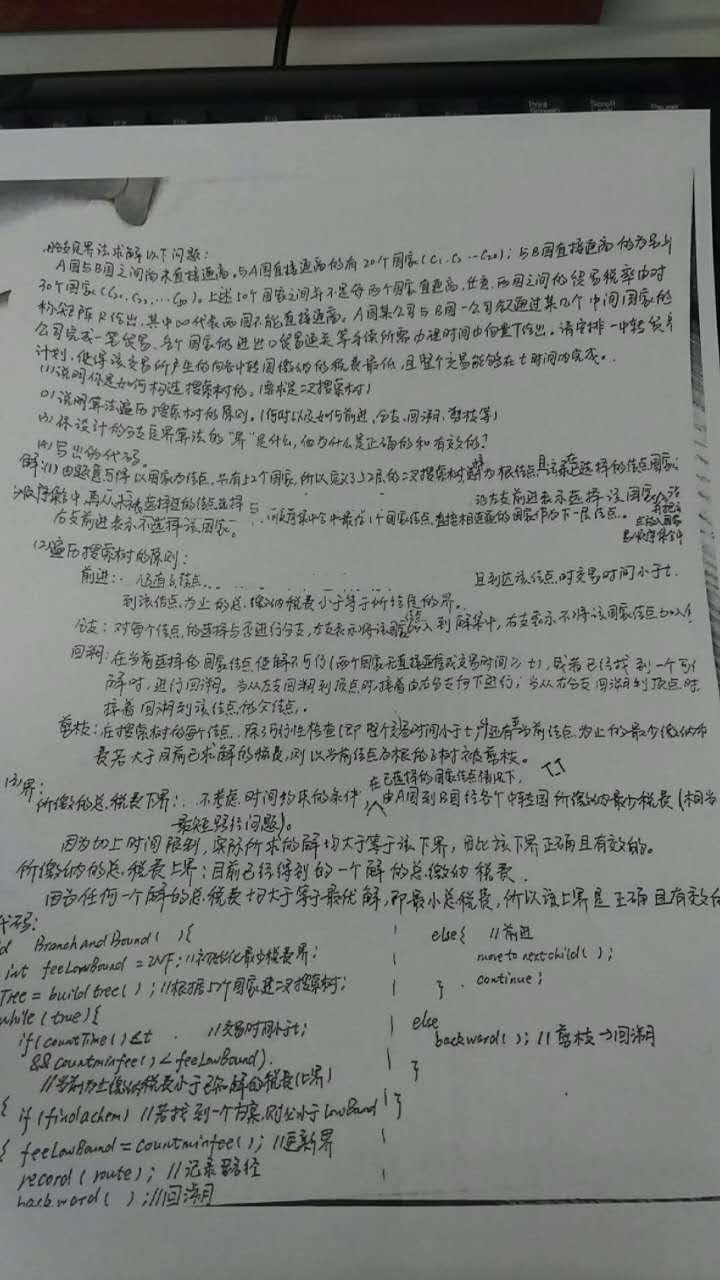 Print Screen
Scroll
Pause
界法求解以下问题:
A国与B国之间尚未直接通商。与A国直接通商的有20个国家(C1.C2…C20);与B国直接通商的为另外
30个国家(C21,C22,…C50)。上述50个国家之间并不是每两个国家直通商,任意两国之间的贸易税率由对
称矩阵R给出,其中∞代表两国不能直接通商。A国某公司与B国一公司欲通过某几个中间国家的
公司完成一笔贸易,各个国家的进出口贸易通关等手续所需办理时间由向量T给出。请安排一中转贸易
计划,使得该交易所产生的向各中转国缴纳的税费最低,且整个交易能够在t时间内完成。
(1)说明你是如何构造搜索树的。(要求是二叉搜索树)
(2)说明算法遍历搜索树的原则。(何时以及如何前进、分支、回溯、剪枝等)
(3)你设计的分支定界算法的"界"是什么,他为什么是正确的和有效的?
(4)写出伪代码。
解:(1)由题意可得以国家为结点,共有52个国家,所以定义52层的二叉搜索树 为根结点 选择的结点国家
集合中,再从未被选择过的结点选择与 集合中最后1个国家结点直接相连通的国家作为下一层结点。
沿左支前进表示选择该国家
右支前进表示不选择该国家。
(2)遍历搜索树的原则:
前进: 且到达该结点时交易时间小于t.
到该结点为止的总缴纳税费小于等于所给定的界。
分支:对每个结点的选择与否进行分支,左支表示将该国家结点加入到解集中,右支表示不将该国家结点加入
回溯:在当前选择的国家结点使解不可行(两个国家无直接连通或交易时间≥t),或者已经找到一个可行
解时,进行回溯。当从左支回溯到顶点时,接着由右分支向下进行;当从右分支回溯到顶点时,
接着回溯到该结点的父结点。
剪枝:在搜索树的每个结点,除了可行性检查(即整个交易时间小于t)外还有当前结点为止的最少缴纳税
费若大于目前已求解的税费,则以当前结点为根的子树被剪枝。
(3)界:
所缴的总税费下界: 不考虑时间约束的条件, 在已选择的国家结点情况下, 由A国到B国经各个中转国所缴纳的最少税费(相当
最短路径问题)。
因为加上时间限制,实际所求的解均大于等于该下界,因此该下界正确且有效的。
所缴纳的总税费上界:目前已经得到的一个解的总缴纳税费.
因为任何一个解的总税费均大于等于最优解,即最小总税费,所以该上界是正确且有效
代码:
d BranchandBound( ){
int feeLowBound = INF; //初始化最少税费界;
Tree = buildtree( ); //根据52个国家建二叉搜索树;
while(true){
if(countTime()≤t //交易时间小于t;
&& countminfee()<feeLowBound).
//当前为止缴纳税费小于已知解的税费(上界)
{ if(findachem) //若找到一个方案,则 小于LowBound
{ feeLowBound = countminfee(); //更新界
record(route); //记录路径
backword( ); //回溯
else{ //前进
move to nextchild( );
continue;
}
else
backword(); //剪枝→回溯
}
}